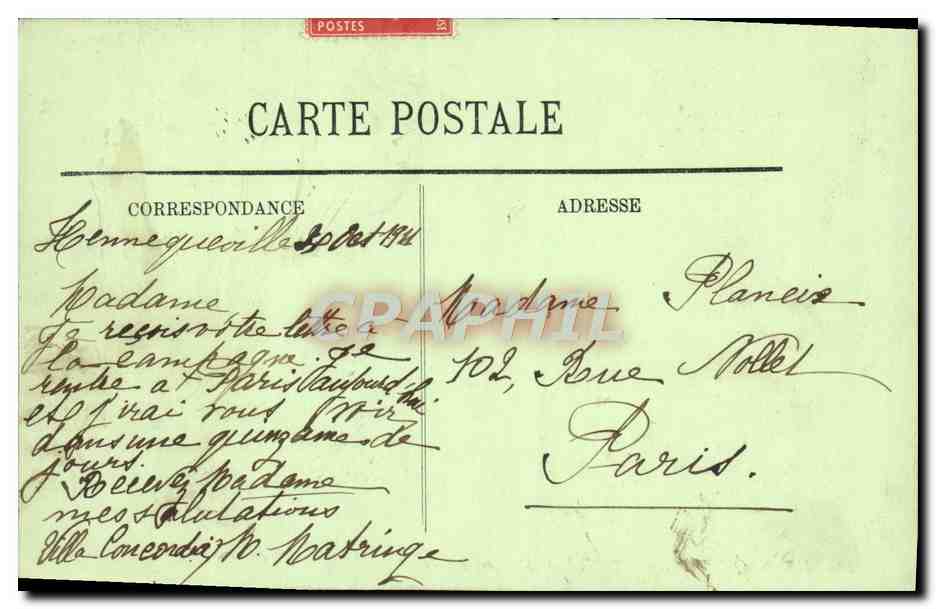 POSTES
CARTE POSTALE
CORRESPONDANCE
ADRESSE
Hennequeville Oct
Madame
je reçois votre lettre à
la campagne. Je
rentre à Paris aujourd'hui
et j'irai vous voir
dans une quinzaine de
jours.
Recevez Madame
mes salutations
Villa Concordia M. Matringe
Madame Plancix
102, Rue Nollet
Paris.
CPAPHIL